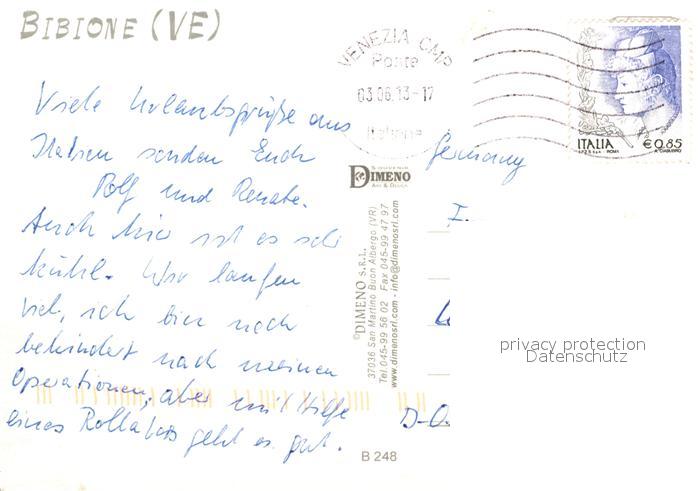 BIBIONE (VE)
VENEZIA CMP
Ponte
03.06.13-17
ITALIA
€ 0,85
Viele Urlaubsgrüße aus
Italien senden Euch
Rolf und Renate.
Auch hier ist es sehr
kühl. Wir laufen
viel, ich bin noch
behindert nach meinen
Operationen, aber mit Hilfe
eines Rollators geht es gut.
Germany
DIMENO
ART & DESIGN
©DIMENO S.R.L.
37036 San Martino Buon Albergo (VR)
Tel.045-99 56 02 Fax 045-99 47 97
www.dimenosrl.com - info@dimenosrl.com
D-
privacy protection
Datenschutz
B 248